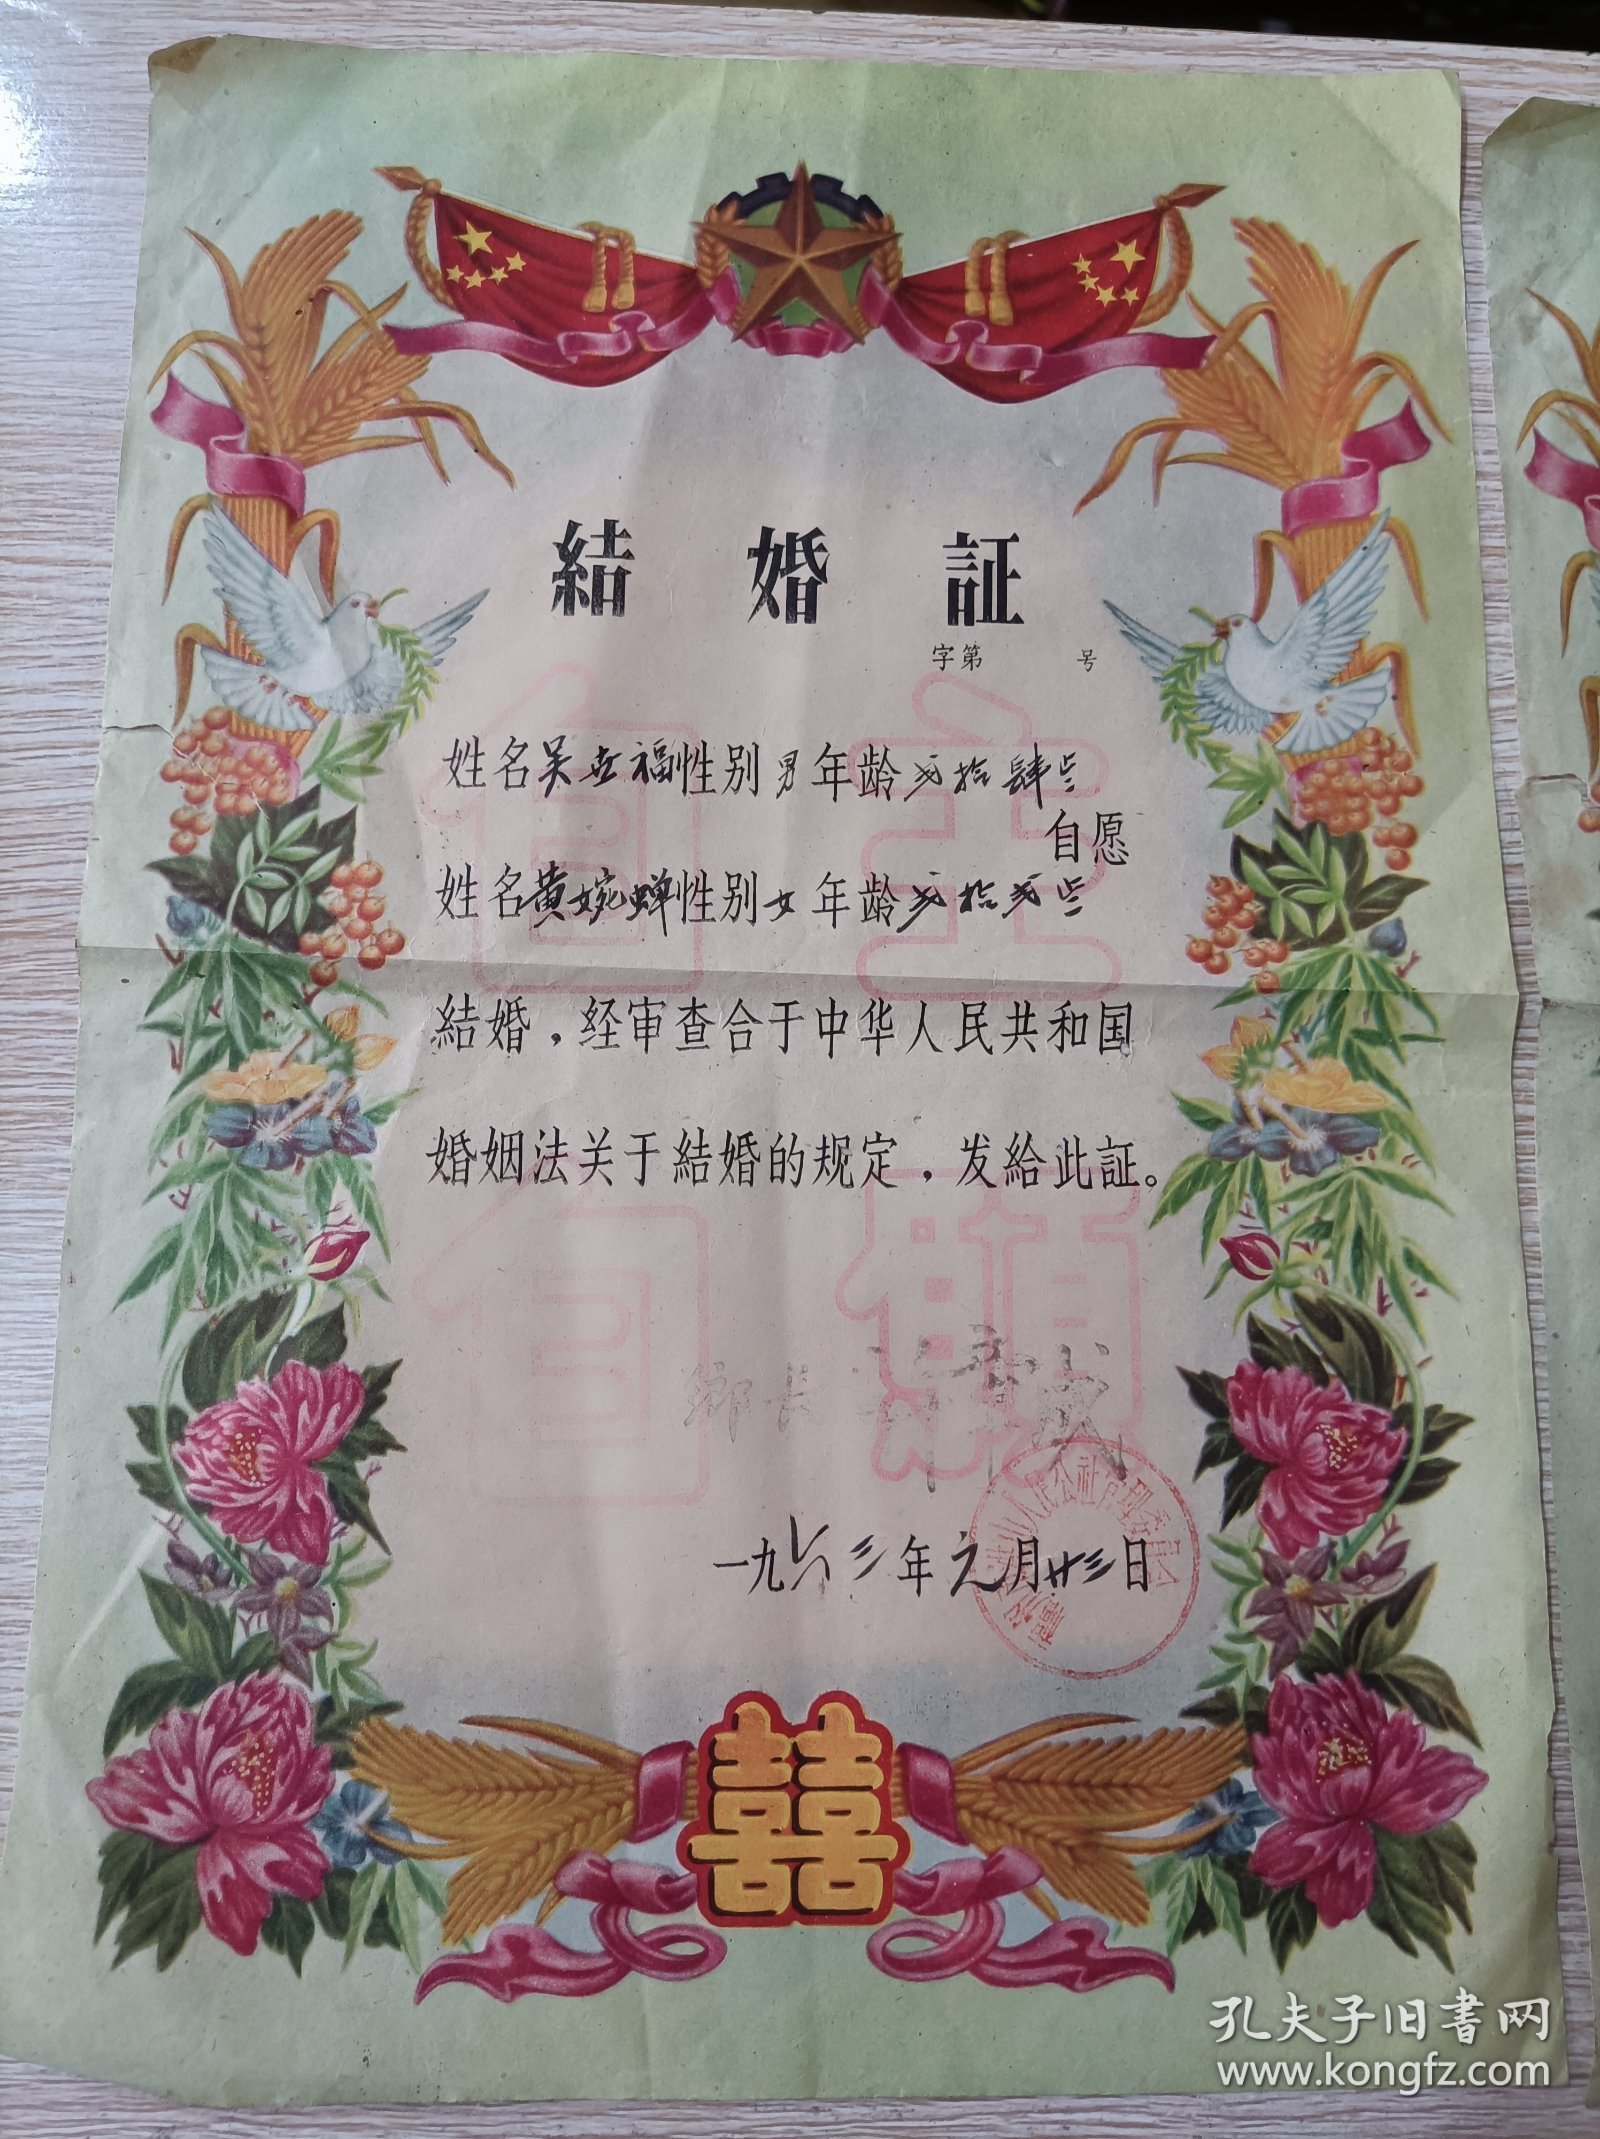 結婚証
字第 号
姓名吴世福性别男年龄弍拾肆岁
自愿
姓名黄婉蝉性别女年龄弍拾弍岁
結婚，经审查合于中华人民共和国
婚姻法关于結婚的规定，发給此証。
自主
自愿
鄉长
一九六三年元月廿三日
人民公社管理委員会
囍
孔夫子旧书网
www.kongfz.com